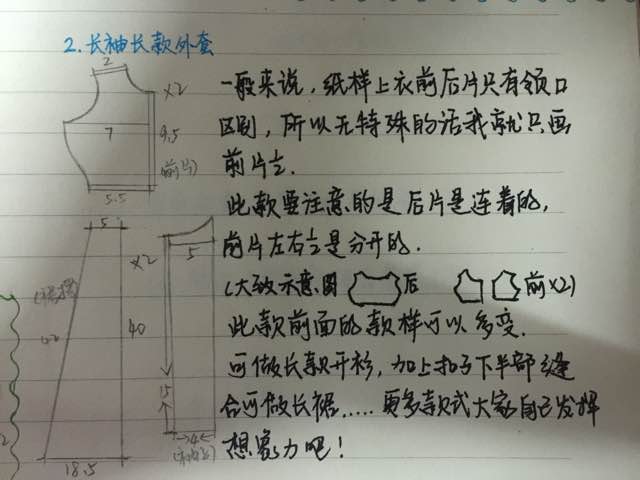 2.长袖长款外套
2
×2
7
9.5
(前片)
5.5
一般来说,纸样上衣前后片只有领口
区别,所以无特殊的话我就只画
前片½.
此款要注意的是后片是连着的,
前片左右½是分开的.
(大致示意图 后 前×2)
此款前面的款样可以多变.
可做长款开衫,加上扣子下半部缝
合可做长裙.....更多款式大家自己发挥
想象力吧!
5
×2
(裙摆)
40
18.5
5
15
4